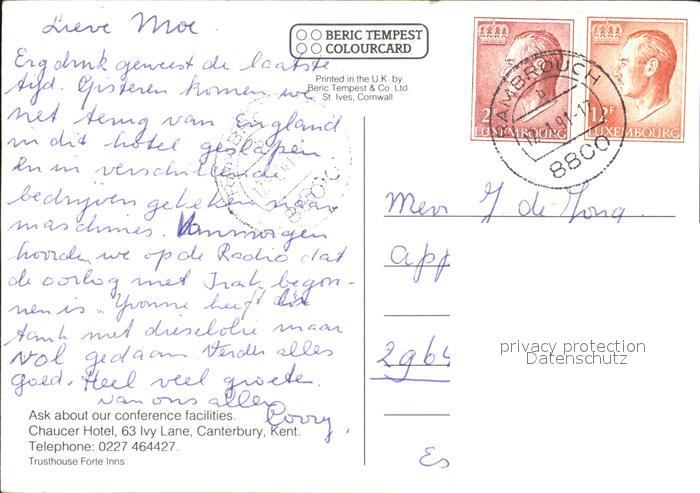 Lieve Moe.
Erg druk geweest de laatste
tijd. Gisteren komen we
net terug van England
in dit hotel geslapen
En in verschillende
bedrijven gekeken naar
machines. Vanmorgen
hoorden we op de Radio dat
de oorlog met Irak begon-
nen is. Yvonne heeft die
tank met dieselolie maar
vol gedaan. Verder alles
goed. Heel veel groeten
van ons allen
Corry.
Ask about our conference facilities.
Chaucer Hotel, 63 Ivy Lane, Canterbury, Kent.
Telephone: 0227 464427.
Trusthouse Forte Inns
BERIC TEMPEST
COLOURCARD
Printed in the U.K. by
Beric Tempest & Co. Ltd.
St. Ives, Cornwall.
2F
LUXEMBOURG
12F
LUXEMBOURG
RAMBROUCH
b
91-17
8800
Mevr J de Jong
app
2964
Es
privacy protection
Datenschutz